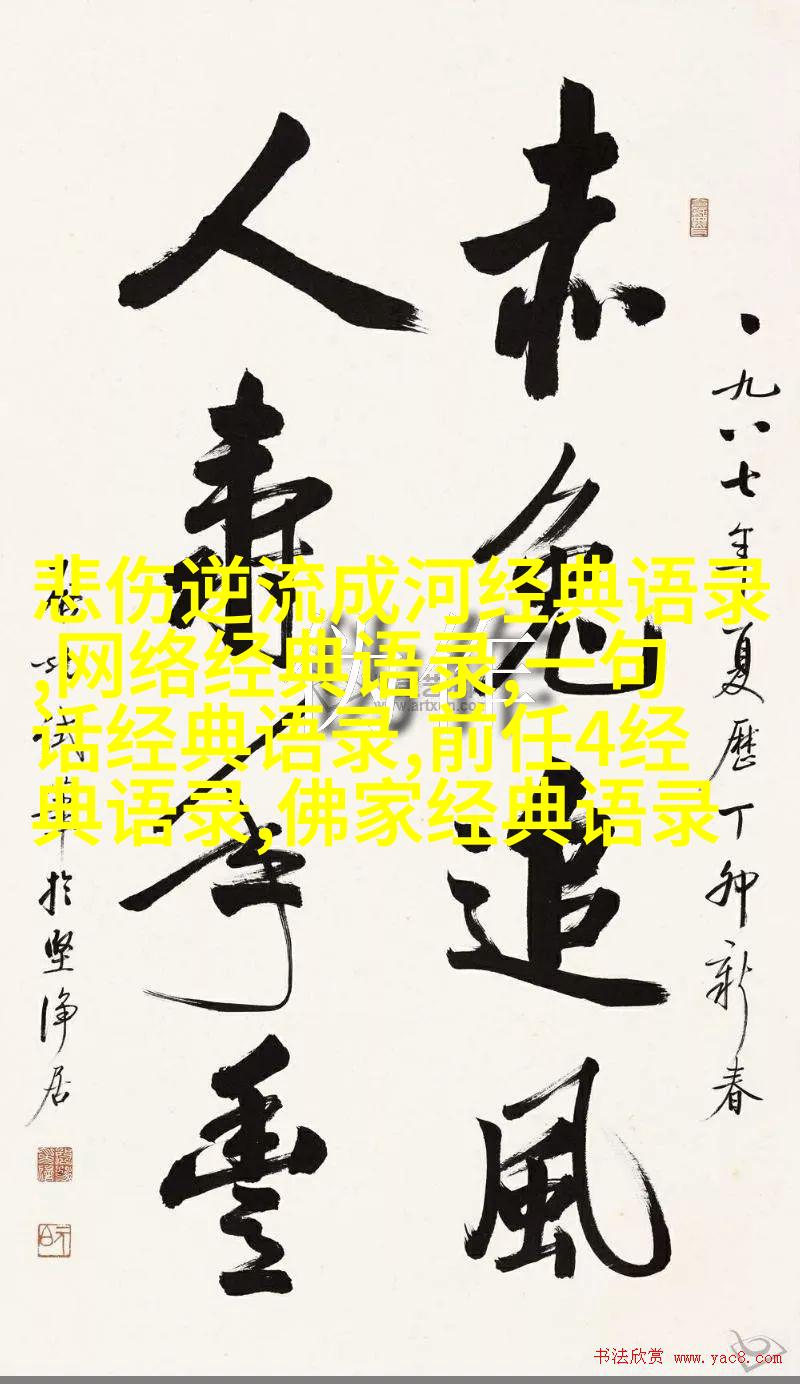 一九八七年夏歷丁卯新春
赤兔追風
人壽年豐
启功試筆於坚净居
悲伤逆流成河经典语录
,网络经典语录,一句
话经典语录,前任4经
典语录,佛家经典语录
www.artxun.com
书法欣赏 www.yac8.com